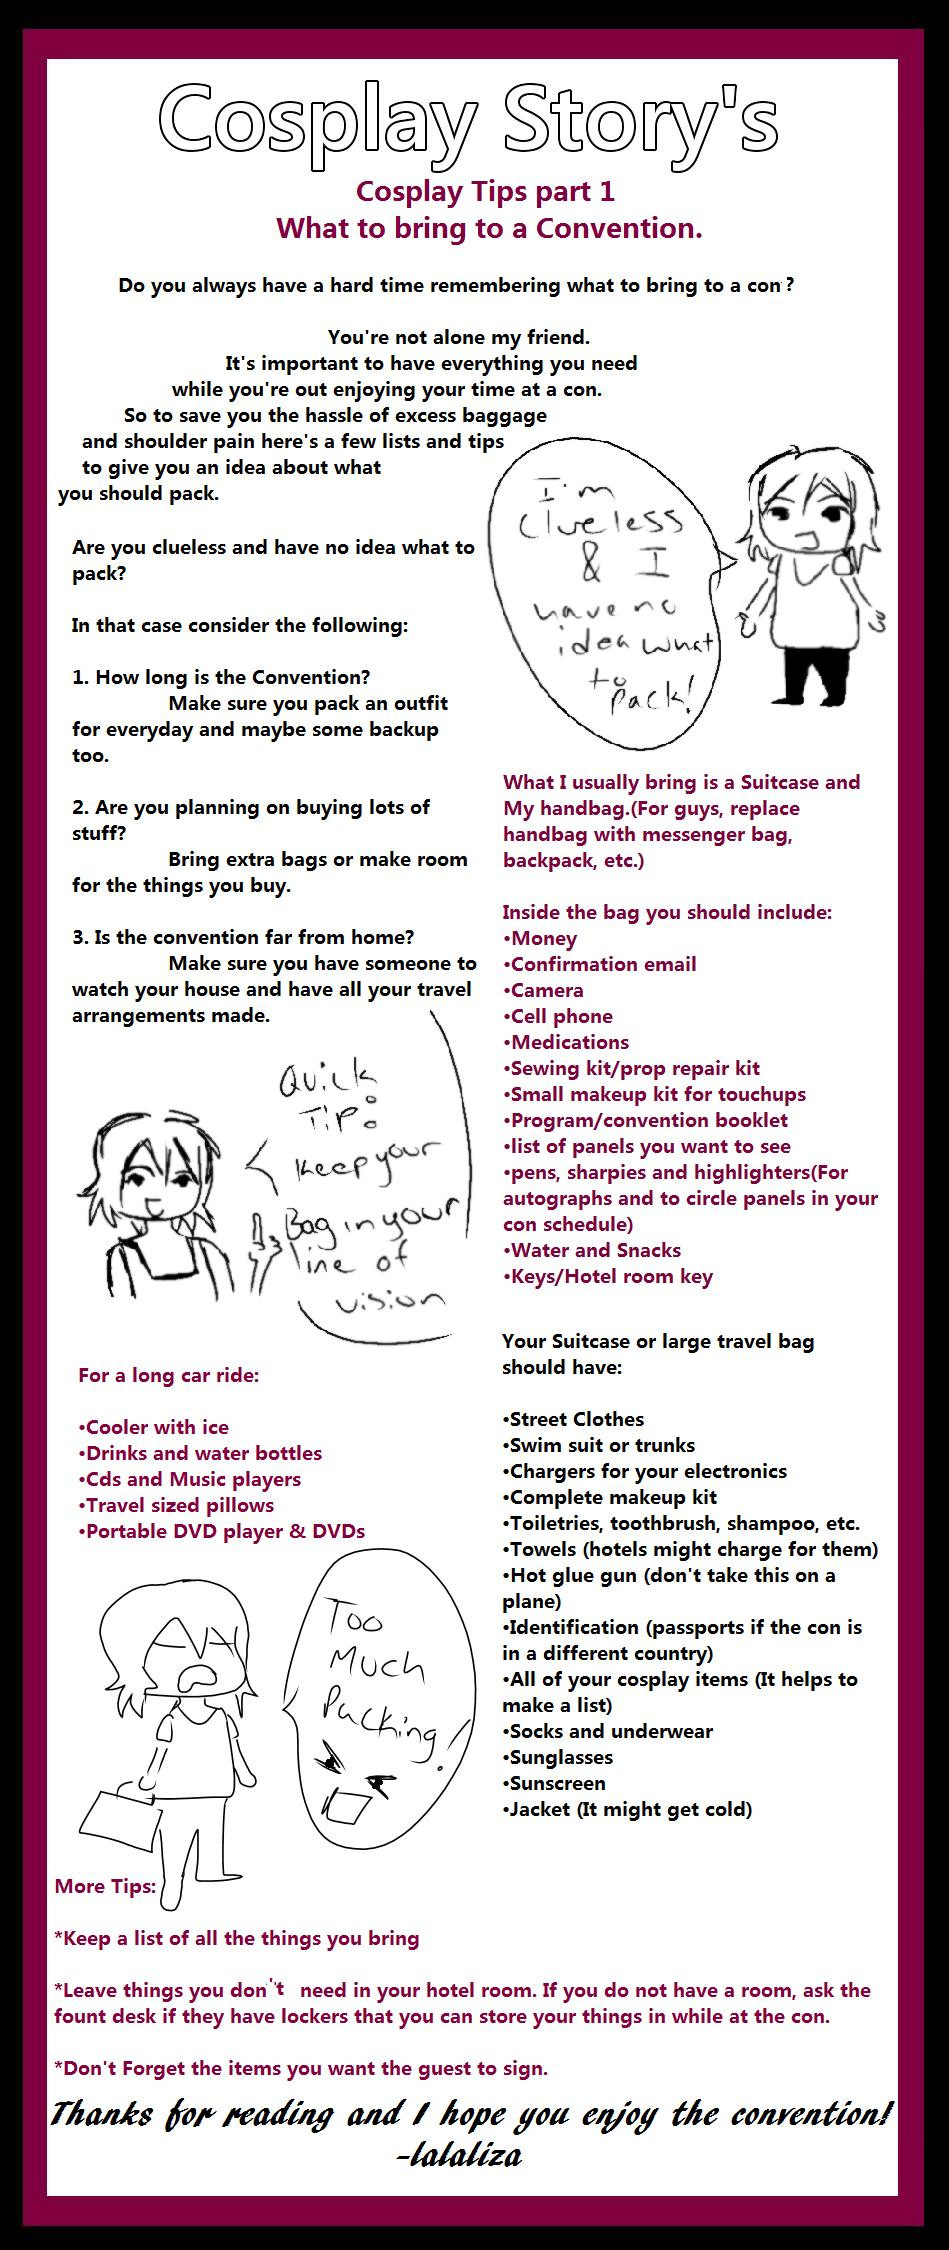 Cosplay Story's
Cosplay Tips part 1
What to bring to a Convention.
Do you always have a hard time remembering what to bring to a con ?
You're not alone my friend.
It's important to have everything you need
while you're out enjoying your time at a con.
So to save you the hassle of excess baggage
and shoulder pain here's a few lists and tips
to give you an idea about what
you should pack.
I'm
clueless
& I
have no
idea what
to
pack!
Are you clueless and have no idea what to
pack?
In that case consider the following:
1. How long is the Convention?
Make sure you pack an outfit
for everyday and maybe some backup
too.
2. Are you planning on buying lots of
stuff?
Bring extra bags or make room
for the things you buy.
3. Is the convention far from home?
Make sure you have someone to
watch your house and have all your travel
arrangements made.
Quick
Tip:
Keep your
Bag in your
line of
vision
What I usually bring is a Suitcase and
My handbag.(For guys, replace
handbag with messenger bag,
backpack, etc.)
Inside the bag you should include:
•Money
•Confirmation email
•Camera
•Cell phone
•Medications
•Sewing kit/prop repair kit
•Small makeup kit for touchups
•Program/convention booklet
•list of panels you want to see
•pens, sharpies and highlighters(For
autographs and to circle panels in your
con schedule)
•Water and Snacks
•Keys/Hotel room key
For a long car ride:
•Cooler with ice
•Drinks and water bottles
•Cds and Music players
•Travel sized pillows
•Portable DVD player & DVDs
Too
Much
Packing!
Your Suitcase or large travel bag
should have:
•Street Clothes
•Swim suit or trunks
•Chargers for your electronics
•Complete makeup kit
•Toiletries, toothbrush, shampoo, etc.
•Towels (hotels might charge for them)
•Hot glue gun (don't take this on a
plane)
•Identification (passports if the con is
in a different country)
•All of your cosplay items (It helps to
make a list)
•Socks and underwear
•Sunglasses
•Sunscreen
•Jacket (It might get cold)
More Tips:
*Keep a list of all the things you bring
*Leave things you don't need in your hotel room. If you do not have a room, ask the
fount desk if they have lockers that you can store your things in while at the con.
*Don't Forget the items you want the guest to sign.
Thanks for reading and I hope you enjoy the convention!
-lalaliza